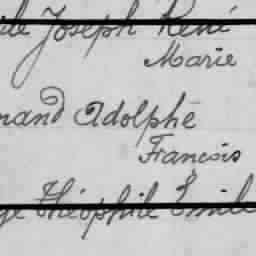 ile Joseph René
Marie
nand Adolphe
Francois
ge Théophile Emile